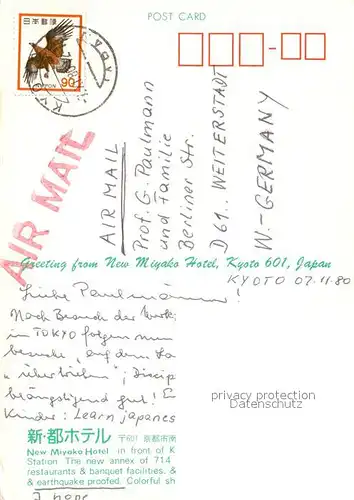 POST CARD
日本郵便
NIPPON
90
KYOTO
AIR MAIL
AIR MAIL
Prof. G. Paulmann
und Familie
Berliner Str.
D 61.. WEITERSTADT
W.-GERMANY
Greeting from New Miyako Hotel, Kyoto 601, Japan
KYOTO 07.11.80
Liebe Paulmänner!
Nach Besuch der
in TOKYO folgen nun
besuche, "auf dem
"übertrieben"; Discip
beängstigend gut!
Kinder: Learn japanes
新・都ホテル 〒601 京都市南
New Miyako Hotel in front of K
Station. The new annex of 714
restaurants & banquet facilities. &
& earthquake proofed. Colorful sh
I hope
privacy protection
Datenschutz